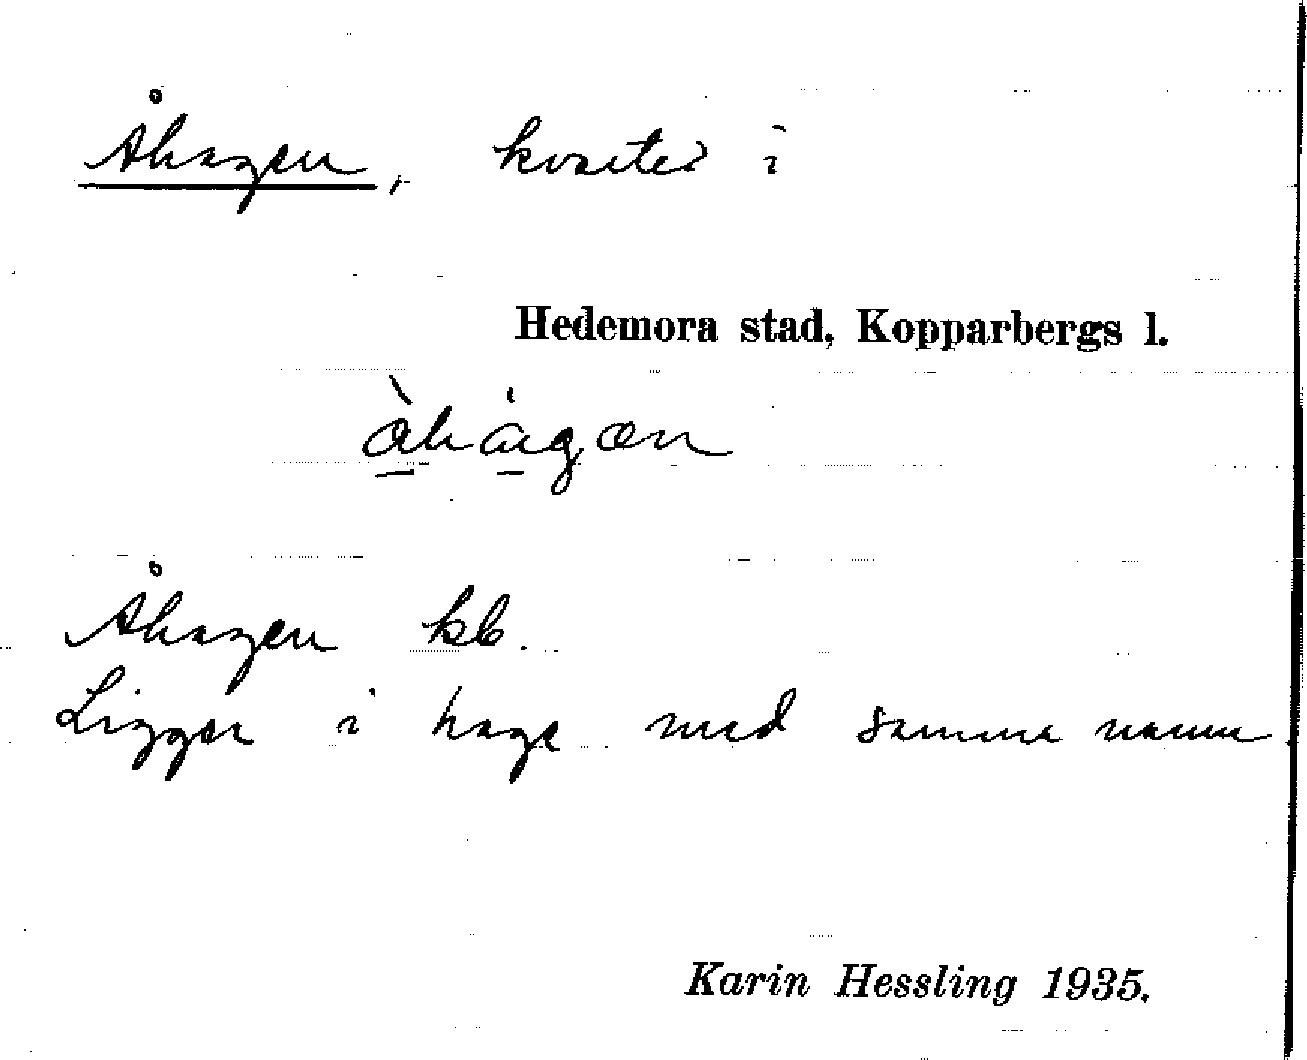 Åhagen, kvarter i
Hedemora stad, Kopparbergs l.
Åhagen kb.
Ligger i hage med samma namn
Karin Hessling 1935.